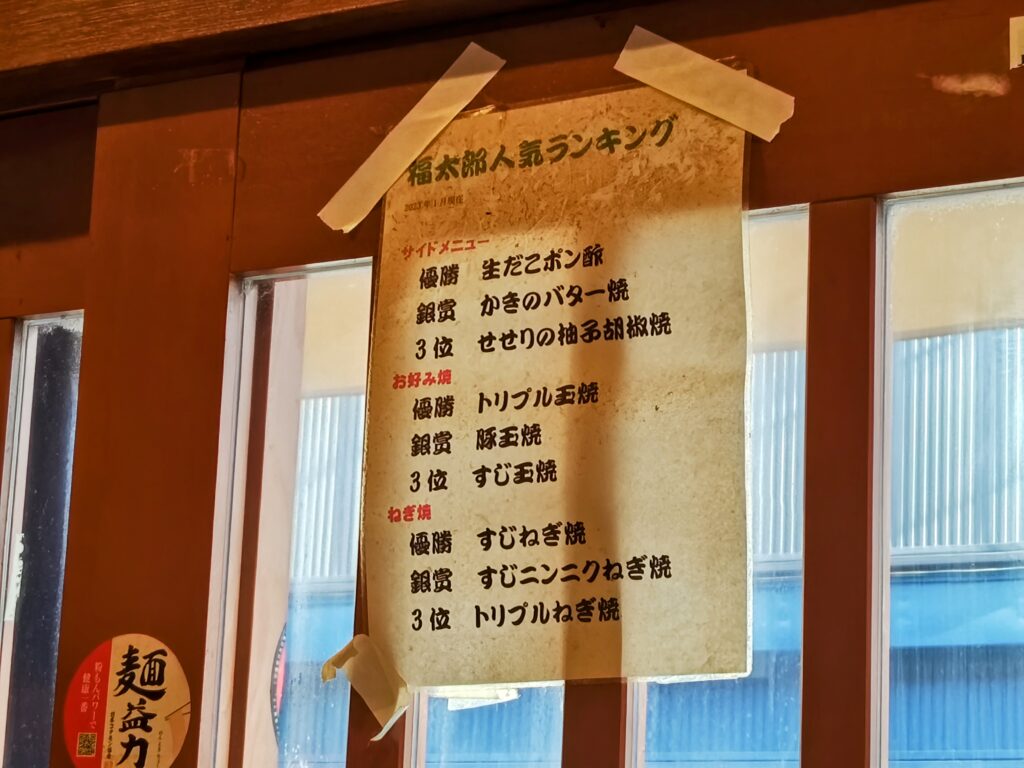 福太郎人気ランキング
2023年1月現在
サイドメニュー
優勝 生だこポン酢
銀賞 かきのバター焼
3位 せせりの柚子胡椒焼
お好み焼
優勝 トリプル玉焼
銀賞 豚玉焼
3位 すじ玉焼
ねぎ焼
優勝 すじねぎ焼
銀賞 すじニンニクねぎ焼
3位 トリプルねぎ焼
粉もんパワーで
健康一番
麺益力